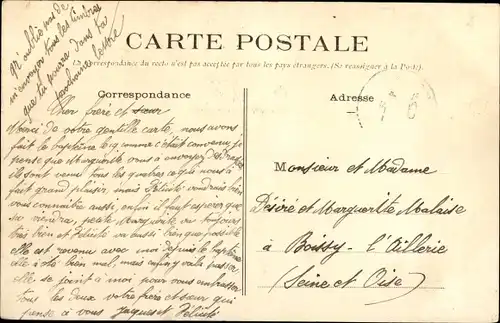 n'oublie pas de
m'envoyer tous les timbres
que tu pourras dans ta
prochaine lettre
CARTE POSTALE
La correspondance du recto n'est pas acceptée par tous les pays étrangers. (Se renseigner à la Poste).
Correspondance
Adresse
Cher frère et sœur
Merci de votre gentille carte, nous avons
fait le baptême le 14 comme c'était convenu, je
pense que Marguerite vous a envoyé
ils sont venus tous les quatres ce qui nous a
fait grand plaisir, mais Félicité voudrait bien
vous connaître aussi, enfin il faut espérer que
sa viendra, petite Marguerite va toujours
très bien et Félicité va aussi bien que possible
elle est revenu avec moi depuis le baptême
elle a été bien mal, mais enfin voilà passer
elle se joint à moi pour vous embrasser
tous les deux votre frère et sœur qui
pense à vous Jacques et Félicité
Monsieur et Madame
Désiré et Marguerite Malaise
à Boissy-l'Aillerie
(Seine et Oise)